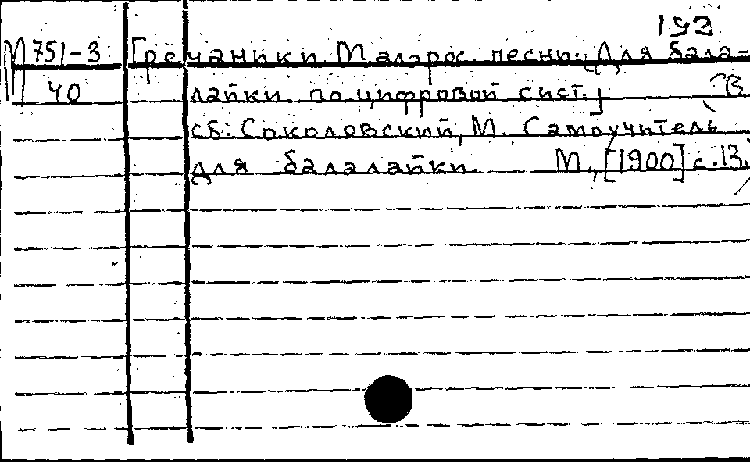 192
М 751-3 Гречаники. Малорос. песнь. [Для бала-
40 лайки по цифровой сист.] В
сб.: Соколовский, М. Самоучитель
для балалайки. М., [1900] с. 13.